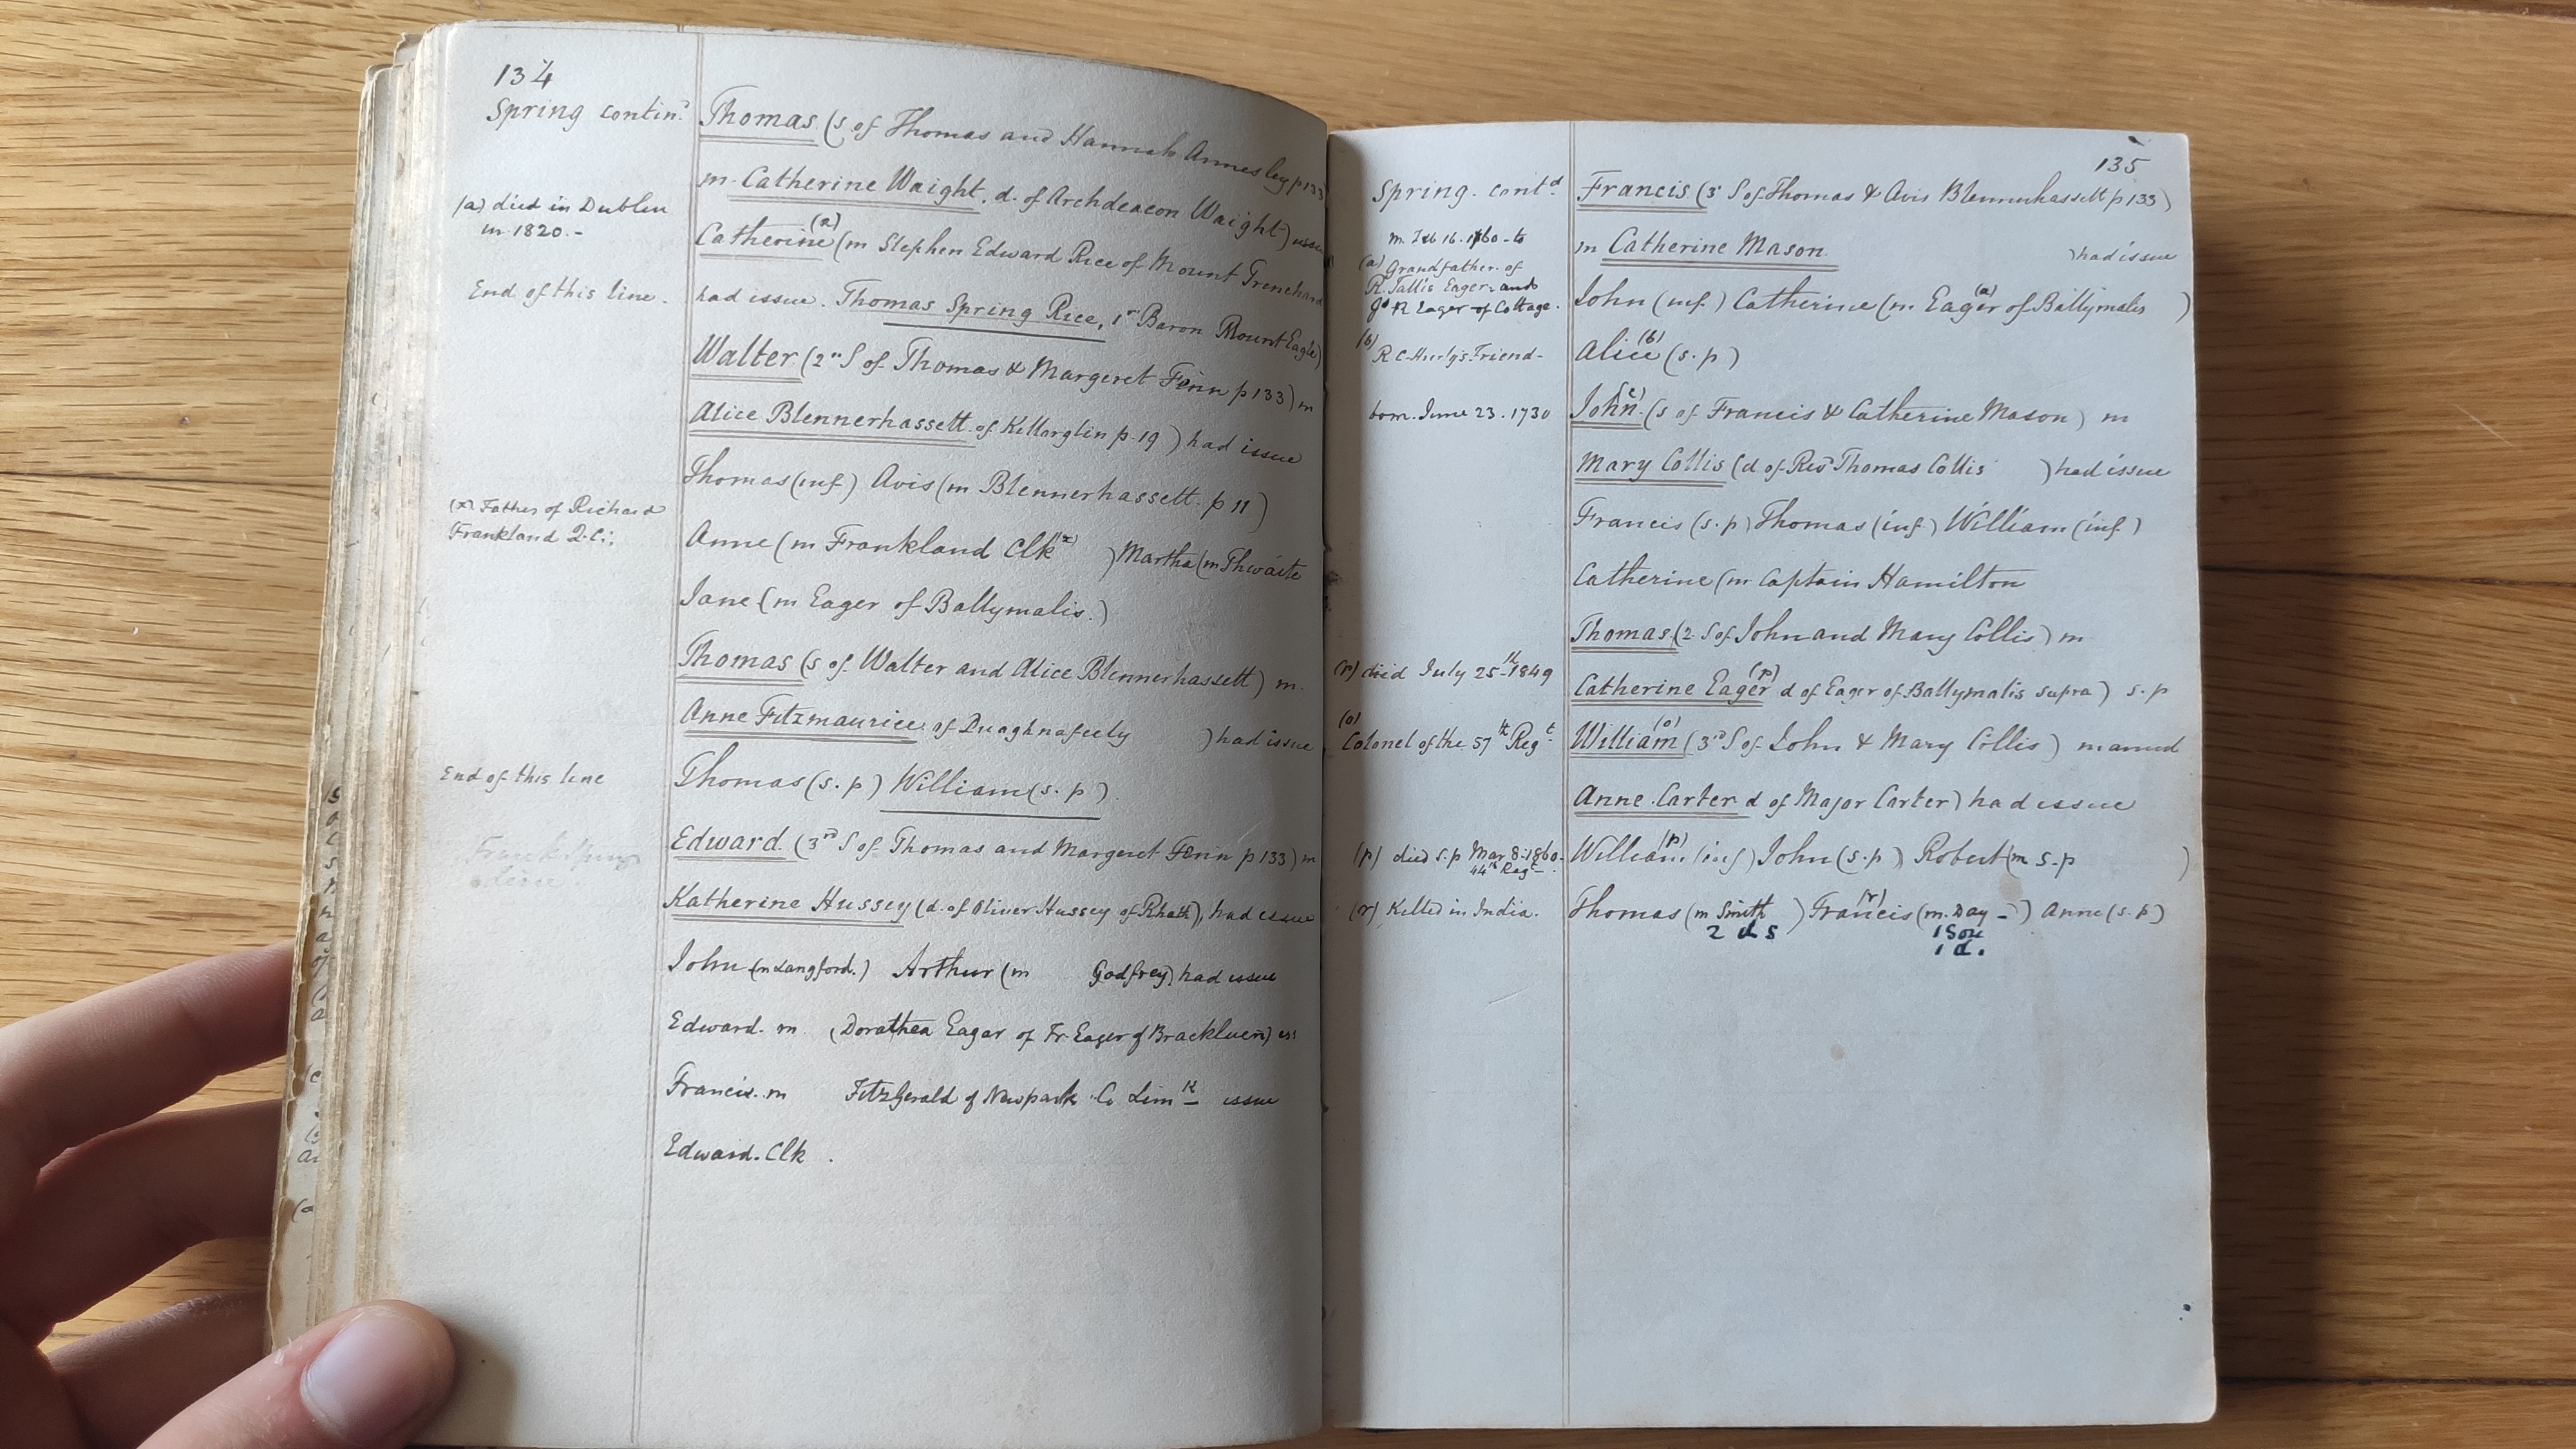 134
Spring contind
Thomas (s of Thomas and Hannah Annesley p 133
m. Catherine Waight, d. of Archdeacon Waight) issue
(a) died in Dublin
in 1820.-
Catherine (a) (m Stephen Edward Rice of Mount Trenchard
End of this line.
had issue. Thomas Spring Rice, 1st Baron MountEagle)
Walter (2nd S of Thomas & Margeret Fenn p 133) m
Alice Blennerhassett of Killorglin p. 19) had issue
Thomas (inf) Avis (m Blennerhassett. p 11)
(x) Father of Richard
Frankland Q.C.
Anne (m Frankland Clk (x) ) Martha (m Thwaite
Jane (m Eager of Ballymalis.)
Thomas (s of Walter and Alice Blennerhassett) m.
Anne Fitzmaurice of Duaghnafeely ) had issue
End of this line
Thomas (s. p) William (s. p)
Edward (3rd S of Thomas and Margeret Fenn p 133) m
Katherine Hussey (d. of Oliver Hussey of Rhath), had issue
John (m Langford.) Arthur (m Godfrey) had issue
Edward. m (Dorathea Eagar of Fr. Eager of Brackluen) iss
Francis. m FitzGerald of Newpark Co Limk issue
Edward. Clk.
135
Spring. contd
Francis (3 S of Thomas & Avis Blennerhassett p 133)
m Feb 16. 1760 - to
m Catherine Mason. ) had issue
(a) Grandfather of
R. Tallis Eager and
R Eager of Cottage.
John (inf) Catherine (m. Eager (a) of Ballymalis )
(b)
R. C. Hurly's Friend-
Alice (b) (s. p)
born. June 23. 1730
John (c) (s of Francis & Catherine Mason) m
Mary Collis (d of Revd Thomas Collis ) had issue
Francis (s. p) Thomas (inf) William (inf)
Catherine (m Captain Hamilton
Thomas (2 S of John and Mary Collis) m
(r) died July 25th 1849
Catherine Eager (r) d of Eager of Ballymalis supra) s. p
(o)
Colonel of the 57th Regt
William (o) (3rd S of John & Mary Collis) married
Anne Carter d of Major Carter) had issue
(p) died s.p Mar 8. 1860.
44th Regt
William (p) (inf) John (s. p) Robert (m s. p )
(r) Killed in India.
Thomas (m Smith ) Francis (r) (m. Day - ) Anne (s. p)
2 ds 1 Son
1 d.